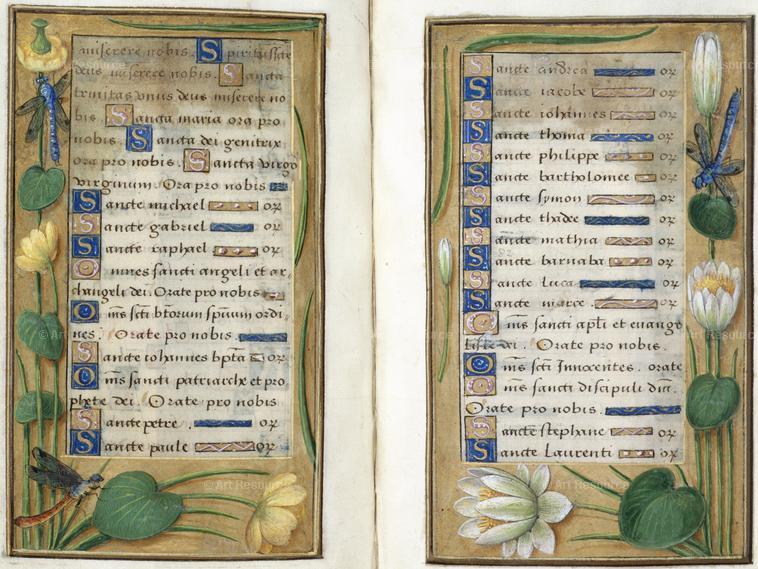 miserere nobis. Spiritus scte
deus miserere nobis. Sancta
trinitas vnus deus miserere no
bis. Sancta maria ora pro
nobis. Sancta dei genitrix
ora pro nobis. Sancta virgo
virginum. Ora pro nobis
Sancte michael or
Sancte gabriel or
Sancte raphael or
Omnes sancti angeli et ar,
changeli dei. Orate pro nobis
Oms scti btorum spituum ordi
nes. Orate pro nobis.
Sancte iohannes bpta or
Oms sancti patriarche et pro
phete dei. Orate pro nobis
Sancte petre. or
Sancte paule or
Sancte andrea or
Sancte iacobe or
Sancte iohannes or
Sancte thoma or
Sancte philippe or
Sancte bartholomee or
Sancte symon or
Sancte thadee or
Sancte mathia or
Sancte barnaba or
Sancte luca or
Sancte marce. or
Oms sancti apli et euange
liste dei. Orate pro nobis.
Oms scti Innocentes. orate
Oms sancti discipuli dni.
Orate pro nobis.
Sancte stephane or
Sancte Laurenti or
© Art Resource